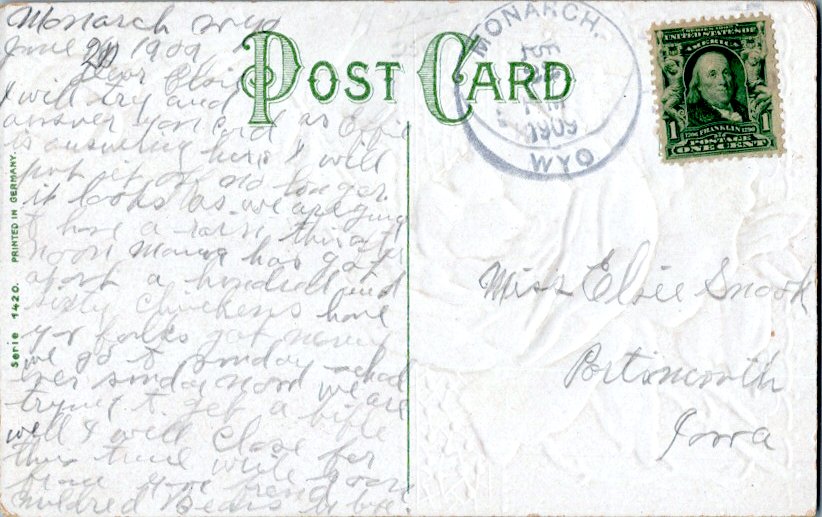 Monarch Wyo
June 20 1909
Dear Elsie
I will try and
answer your card as Effie
is answering hers I will
put it of no longer
it looks as we are going
to have a rain this after
noon Mama has got
about a hundred and
sixty chickens have
your folks got many
we go to sunday school
ever sunday now we are
trying to get a bible
well I will close for
this time write
from your friend
Mildred
POST CARD
MONARCH.
1909
WYO
SERIES 1902
UNITED STATES OF AMERICA
1
1706 FRANKLIN 1790
POSTAGE
ONE CENT
Miss Elsie Snook
Portsmouth
Iowa
Serie 1420. PRINTED IN GERMANY.